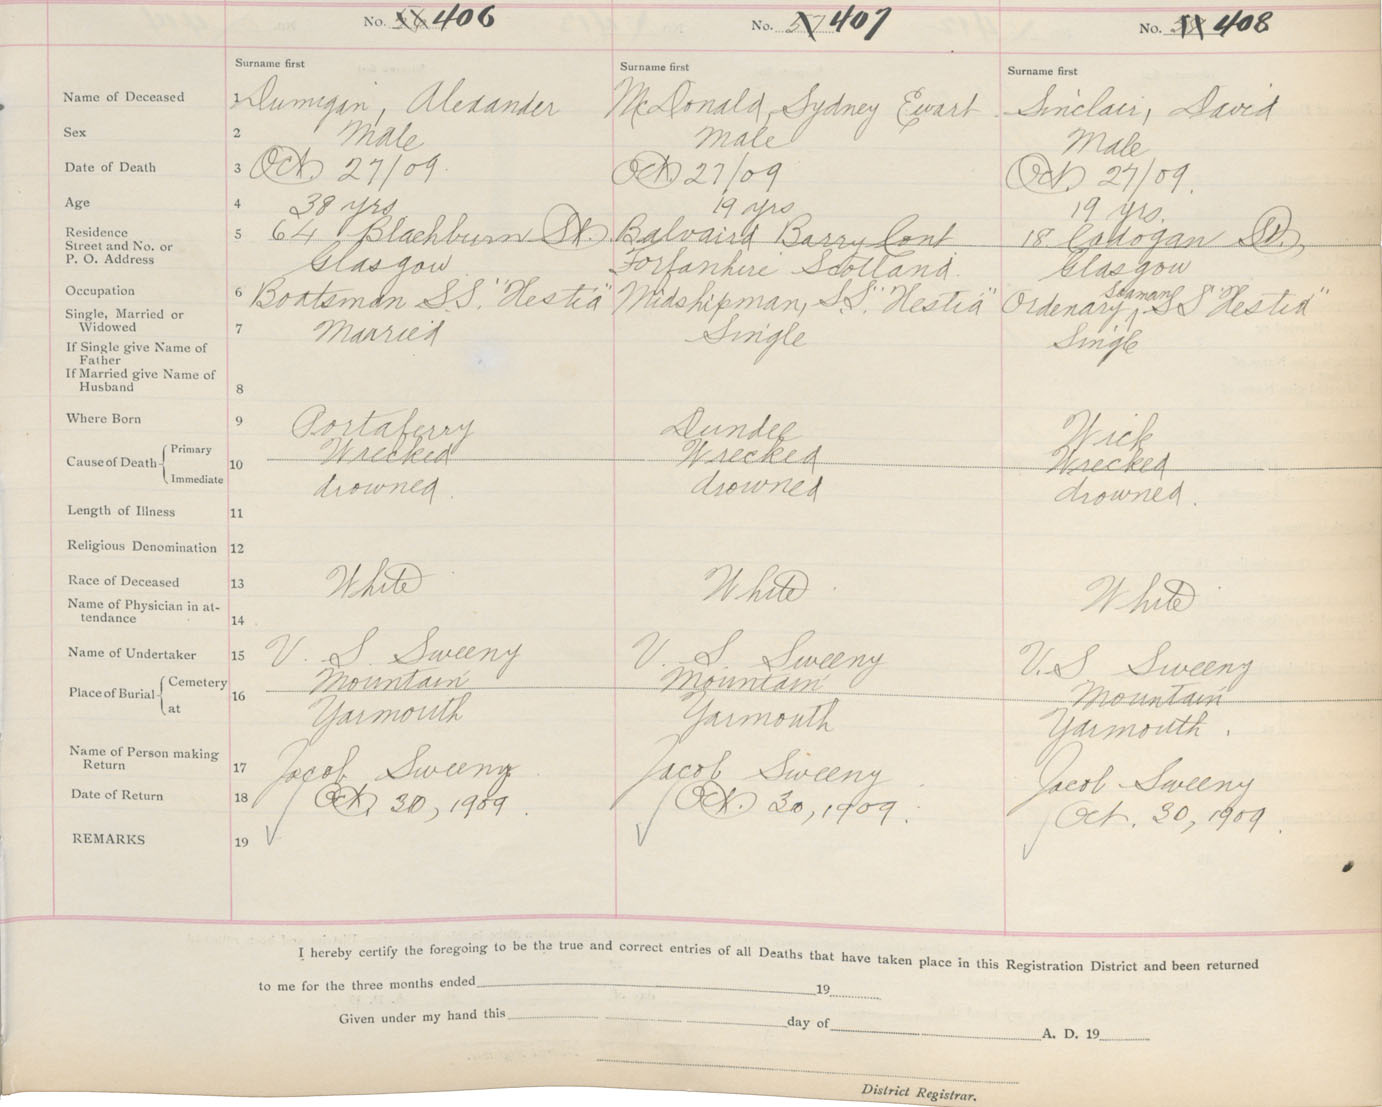 No. 56 406 No. 57 407 No. 58 408
Surname first Surname first Surname first
Name of Deceased 1 Dumigan, Alexander McDonald, Sydney Ewart Sinclair, David
Sex 2 Male Male Male
Date of Death 3 Oct. 27/09. Oct 27/09 Oct. 27/09.
Age 4 38 yrs 19 yrs 19 yrs.
Residence 5 64 Blackburn St. Balvaird Barry Cont 18 Cadogan St.,
Street and No. or
P. O. Address Glasgow Forfanhire Scotland. Glasgow
Occupation 6 Boatsman S.S. "Hestia" Midshipman, S.S. "Hestia" Ordenary, Seaman SS "Hestia"
Single, Married or
Widowed 7 Married Single Single
If Single give Name of
Father
If Married give Name of
Husband 8
Where Born 9 Portaferry Dundee Wick
Cause of Death Primary 10 Wrecked Wrecked Wrecked
Immediate drowned. drowned drowned.
Length of Illness 11
Religious Denomination 12
Race of Deceased 13 White White White
Name of Physician in at-
tendance 14
Name of Undertaker 15 V. S. Sweeny V. S. Sweeny V. S Sweeny
Place of Burial Cemetery 16 Mountain Mountain Mountain
at Yarmouth Yarmouth Yarmouth.
Name of Person making
Return 17 Jacob Sweeny Jacob Sweeny Jacob Sweeny
Date of Return 18 Oct. 30, 1909. Oct. 30, 1909. Oct. 30, 1909.
REMARKS 19
I hereby certify the foregoing to be the true and correct entries of all Deaths that have taken place in this Registration District and been returned
to me for the three months ended 19
Given under my hand this day of A. D. 19
District Registrar.